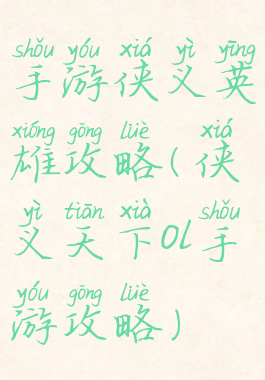 shǒu yóu xiá yì yīng
手游侠义英
xióng gōng lüè xiá
雄攻略(侠
yì tiān xià shǒu
义天下ol手
yóu gōng lüè
游攻略)